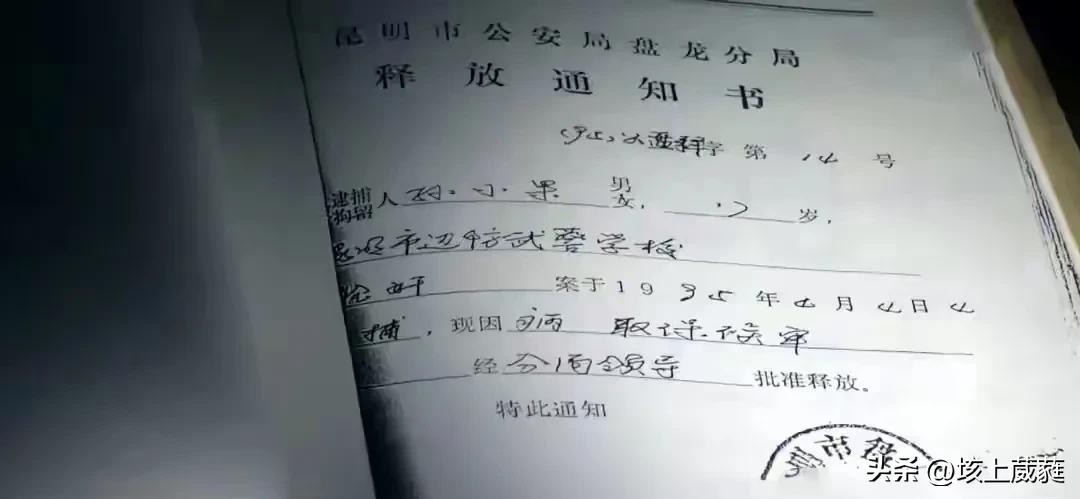 昆明市公安局盘龙分局
释放通知书
(95)公盘释字第14号
逮捕
拘留人孙小果 男
女,17岁,
昆明市边防武警学校
轮奸 案于1995年4月4日
捕,现因病 取保候审
经分局领导 批准释放。
特此通知
市
头条 @垓上葳蕤